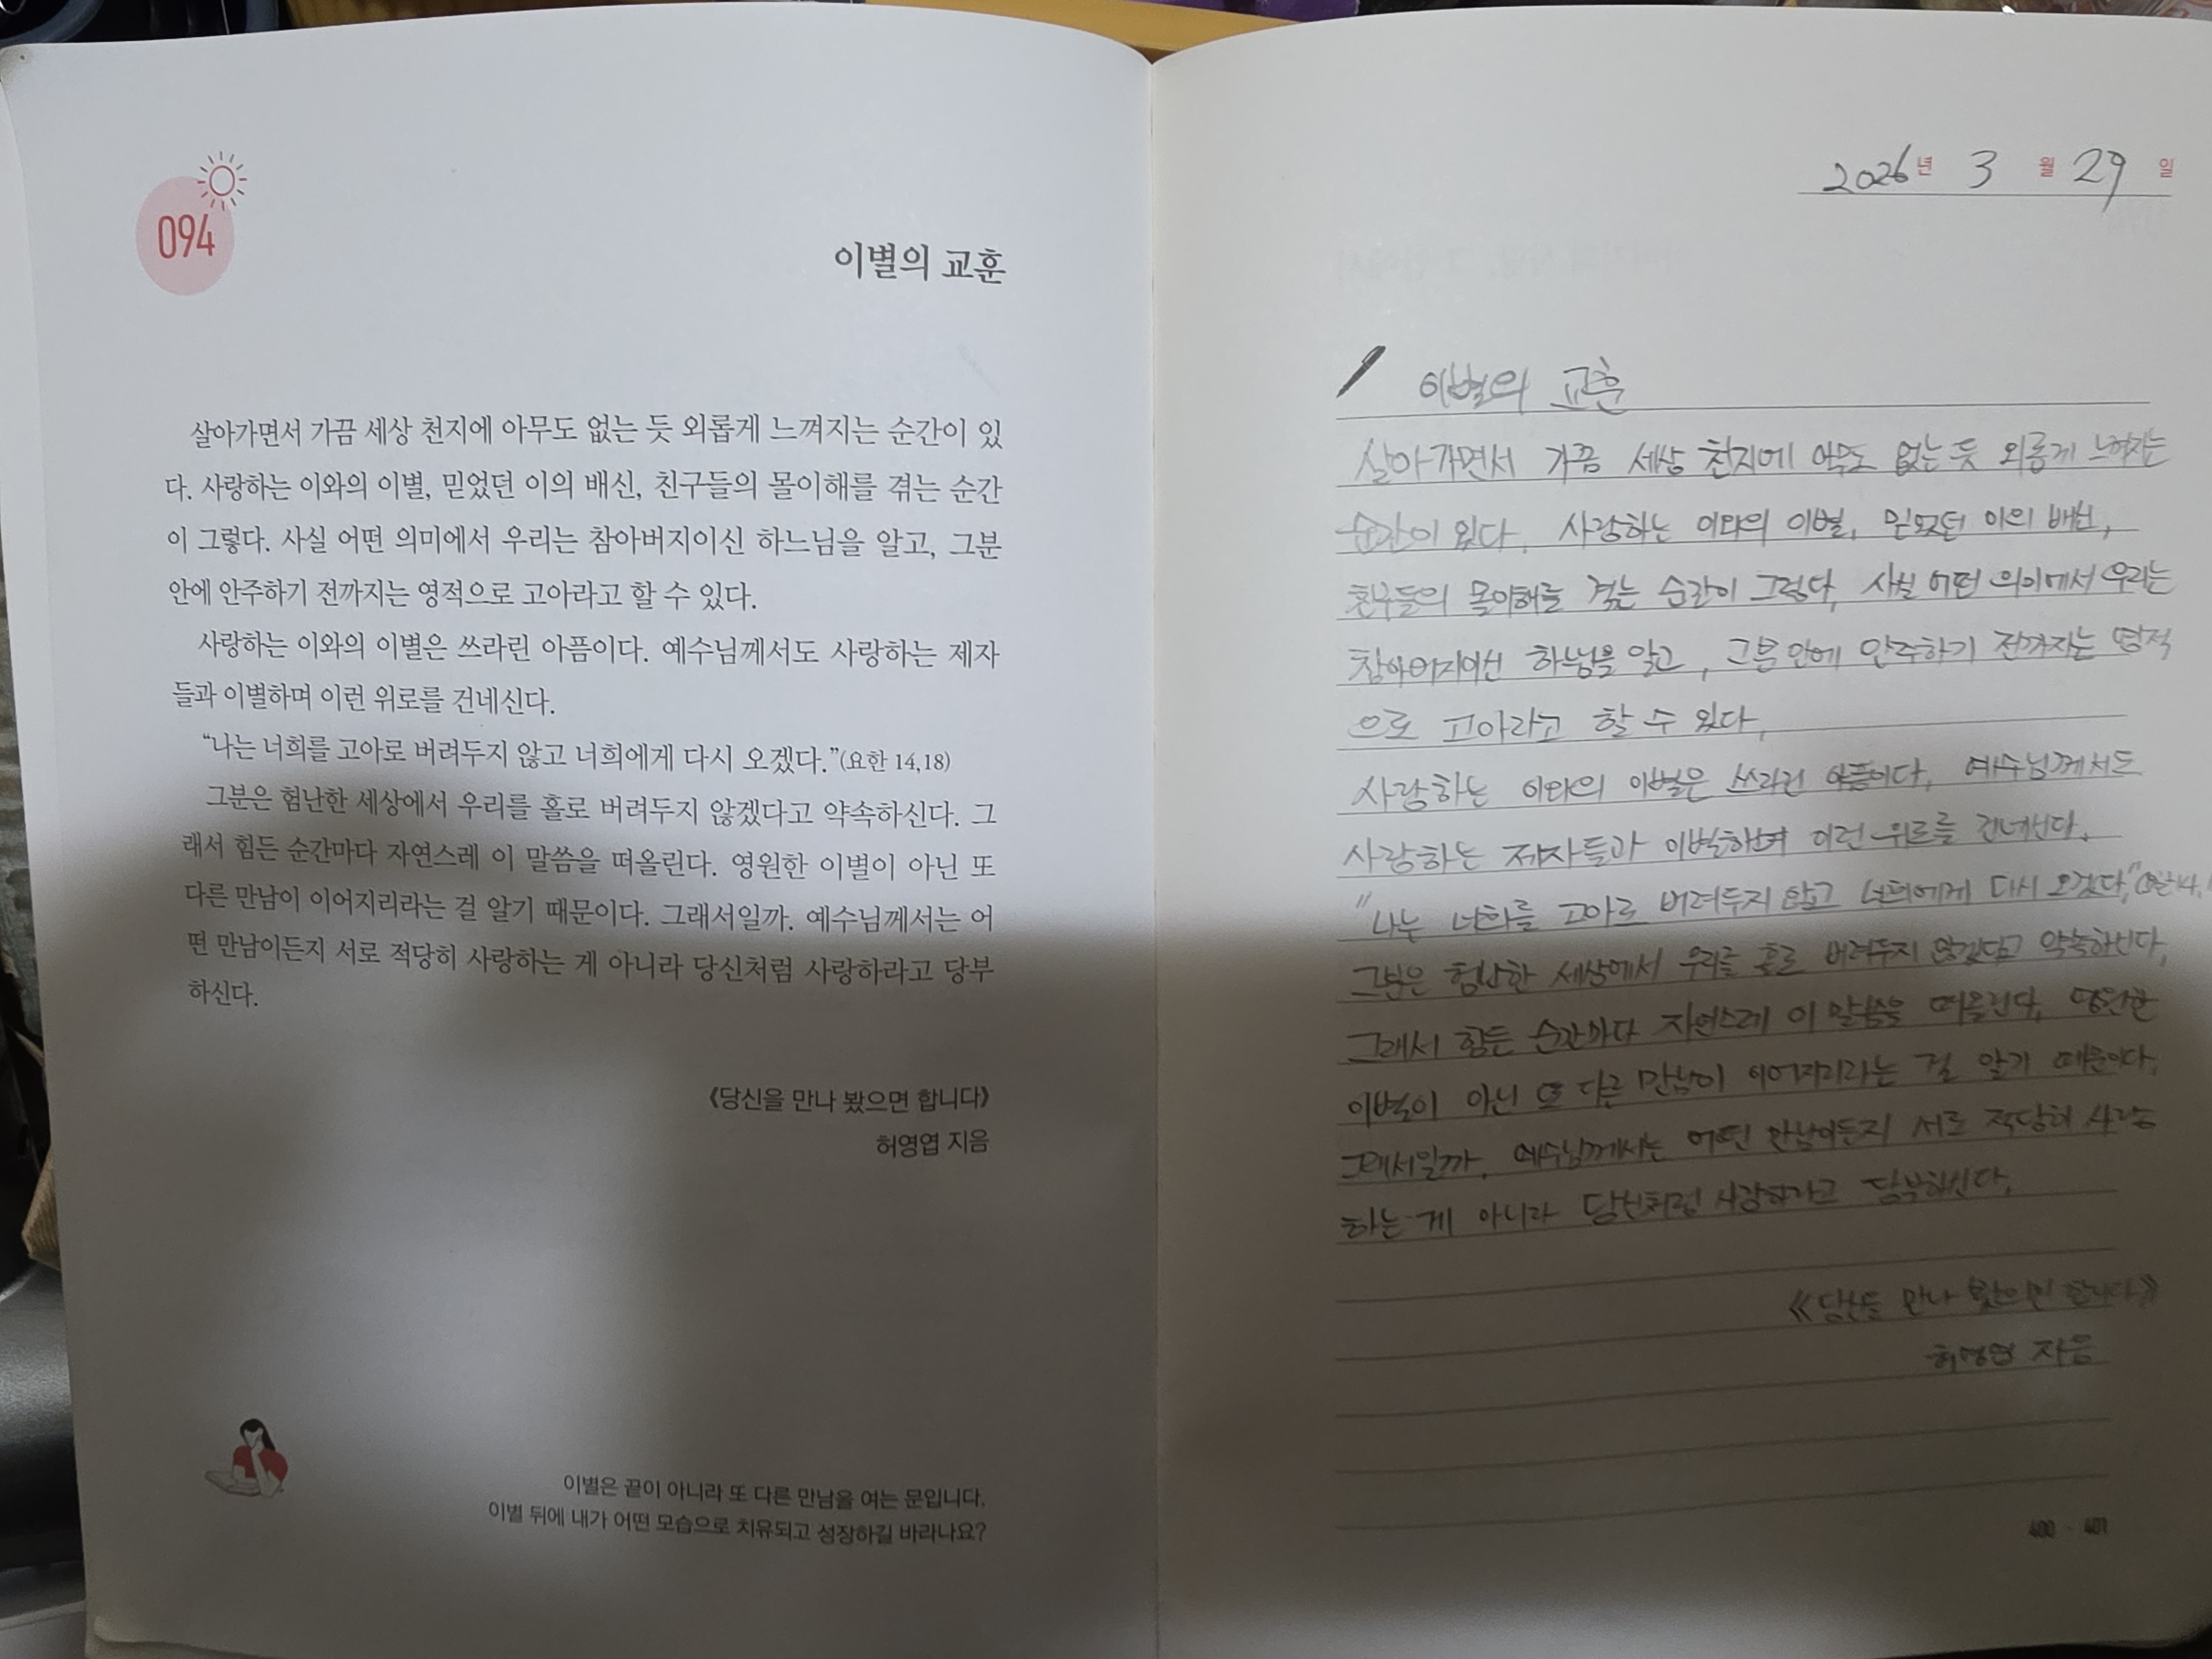 094
이별의 교훈
살아가면서 가끔 세상 천지에 아무도 없는 듯 외롭게 느껴지는 순간이 있
다. 사랑하는 이와의 이별, 믿었던 이의 배신, 친구들의 몰이해를 겪는 순간
이 그렇다. 사실 어떤 의미에서 우리는 참아버지이신 하느님을 알고, 그분
안에 안주하기 전까지는 영적으로 고아라고 할 수 있다.
사랑하는 이와의 이별은 쓰라린 아픔이다. 예수님께서도 사랑하는 제자
들과 이별하며 이런 위로를 건네신다.
“나는 너희를 고아로 버려두지 않고 너희에게 다시 오겠다.”(요한 14,18)
그분은 험난한 세상에서 우리를 홀로 버려두지 않겠다고 약속하신다. 그
래서 힘든 순간마다 자연스레 이 말씀을 떠올린다. 영원한 이별이 아닌 또
다른 만남이 이어지리라는 걸 알기 때문이다. 그래서일까. 예수님께서는 어
떤 만남이든지 서로 적당히 사랑하는 게 아니라 당신처럼 사랑하라고 당부
하신다.
《당신을 만나 봤으면 합니다》
허영엽 지음
이별은 끝이 아니라 또 다른 만남을 여는 문입니다.
이별 뒤에 내가 어떤 모습으로 치유되고 성장하길 바라나요?
2026년 3월 29일
이별의 교훈
살아가면서 가끔 세상 천지에 아무도 없는 듯 외롭게 느껴지는
순간이 있다. 사랑하는 이와의 이별, 믿었던 이의 배신,
친구들의 몰이해를 겪는 순간이 그렇다. 사실 어떤 의미에서 우리는
참아버지이신 하느님을 알고, 그분 안에 안주하기 전까지는 영적
으로 고아라고 할 수 있다.
사랑하는 이와의 이별은 쓰라린 아픔이다. 예수님께서도
사랑하는 제자들과 이별하며 이런 위로를 건네신다.
"나는 너희를 고아로 버려두지 않고 너희에게 다시 오겠다."(요한 14,
그분은 험난한 세상에서 우리를 홀로 버려두지 않겠다고 약속하신다.
그래서 힘든 순간마다 자연스레 이 말씀을 떠올린다. 영원한
이별이 아닌 또 다른 만남이 이어지리라는 걸 알기 때문이다.
그래서일까. 예수님께서는 어떤 만남이든지 서로 적당히 사랑
하는 게 아니라 당신처럼 사랑하라고 당부하신다.
《당신을 만나 봤으면 합니다》
허영엽 지음
400 · 401